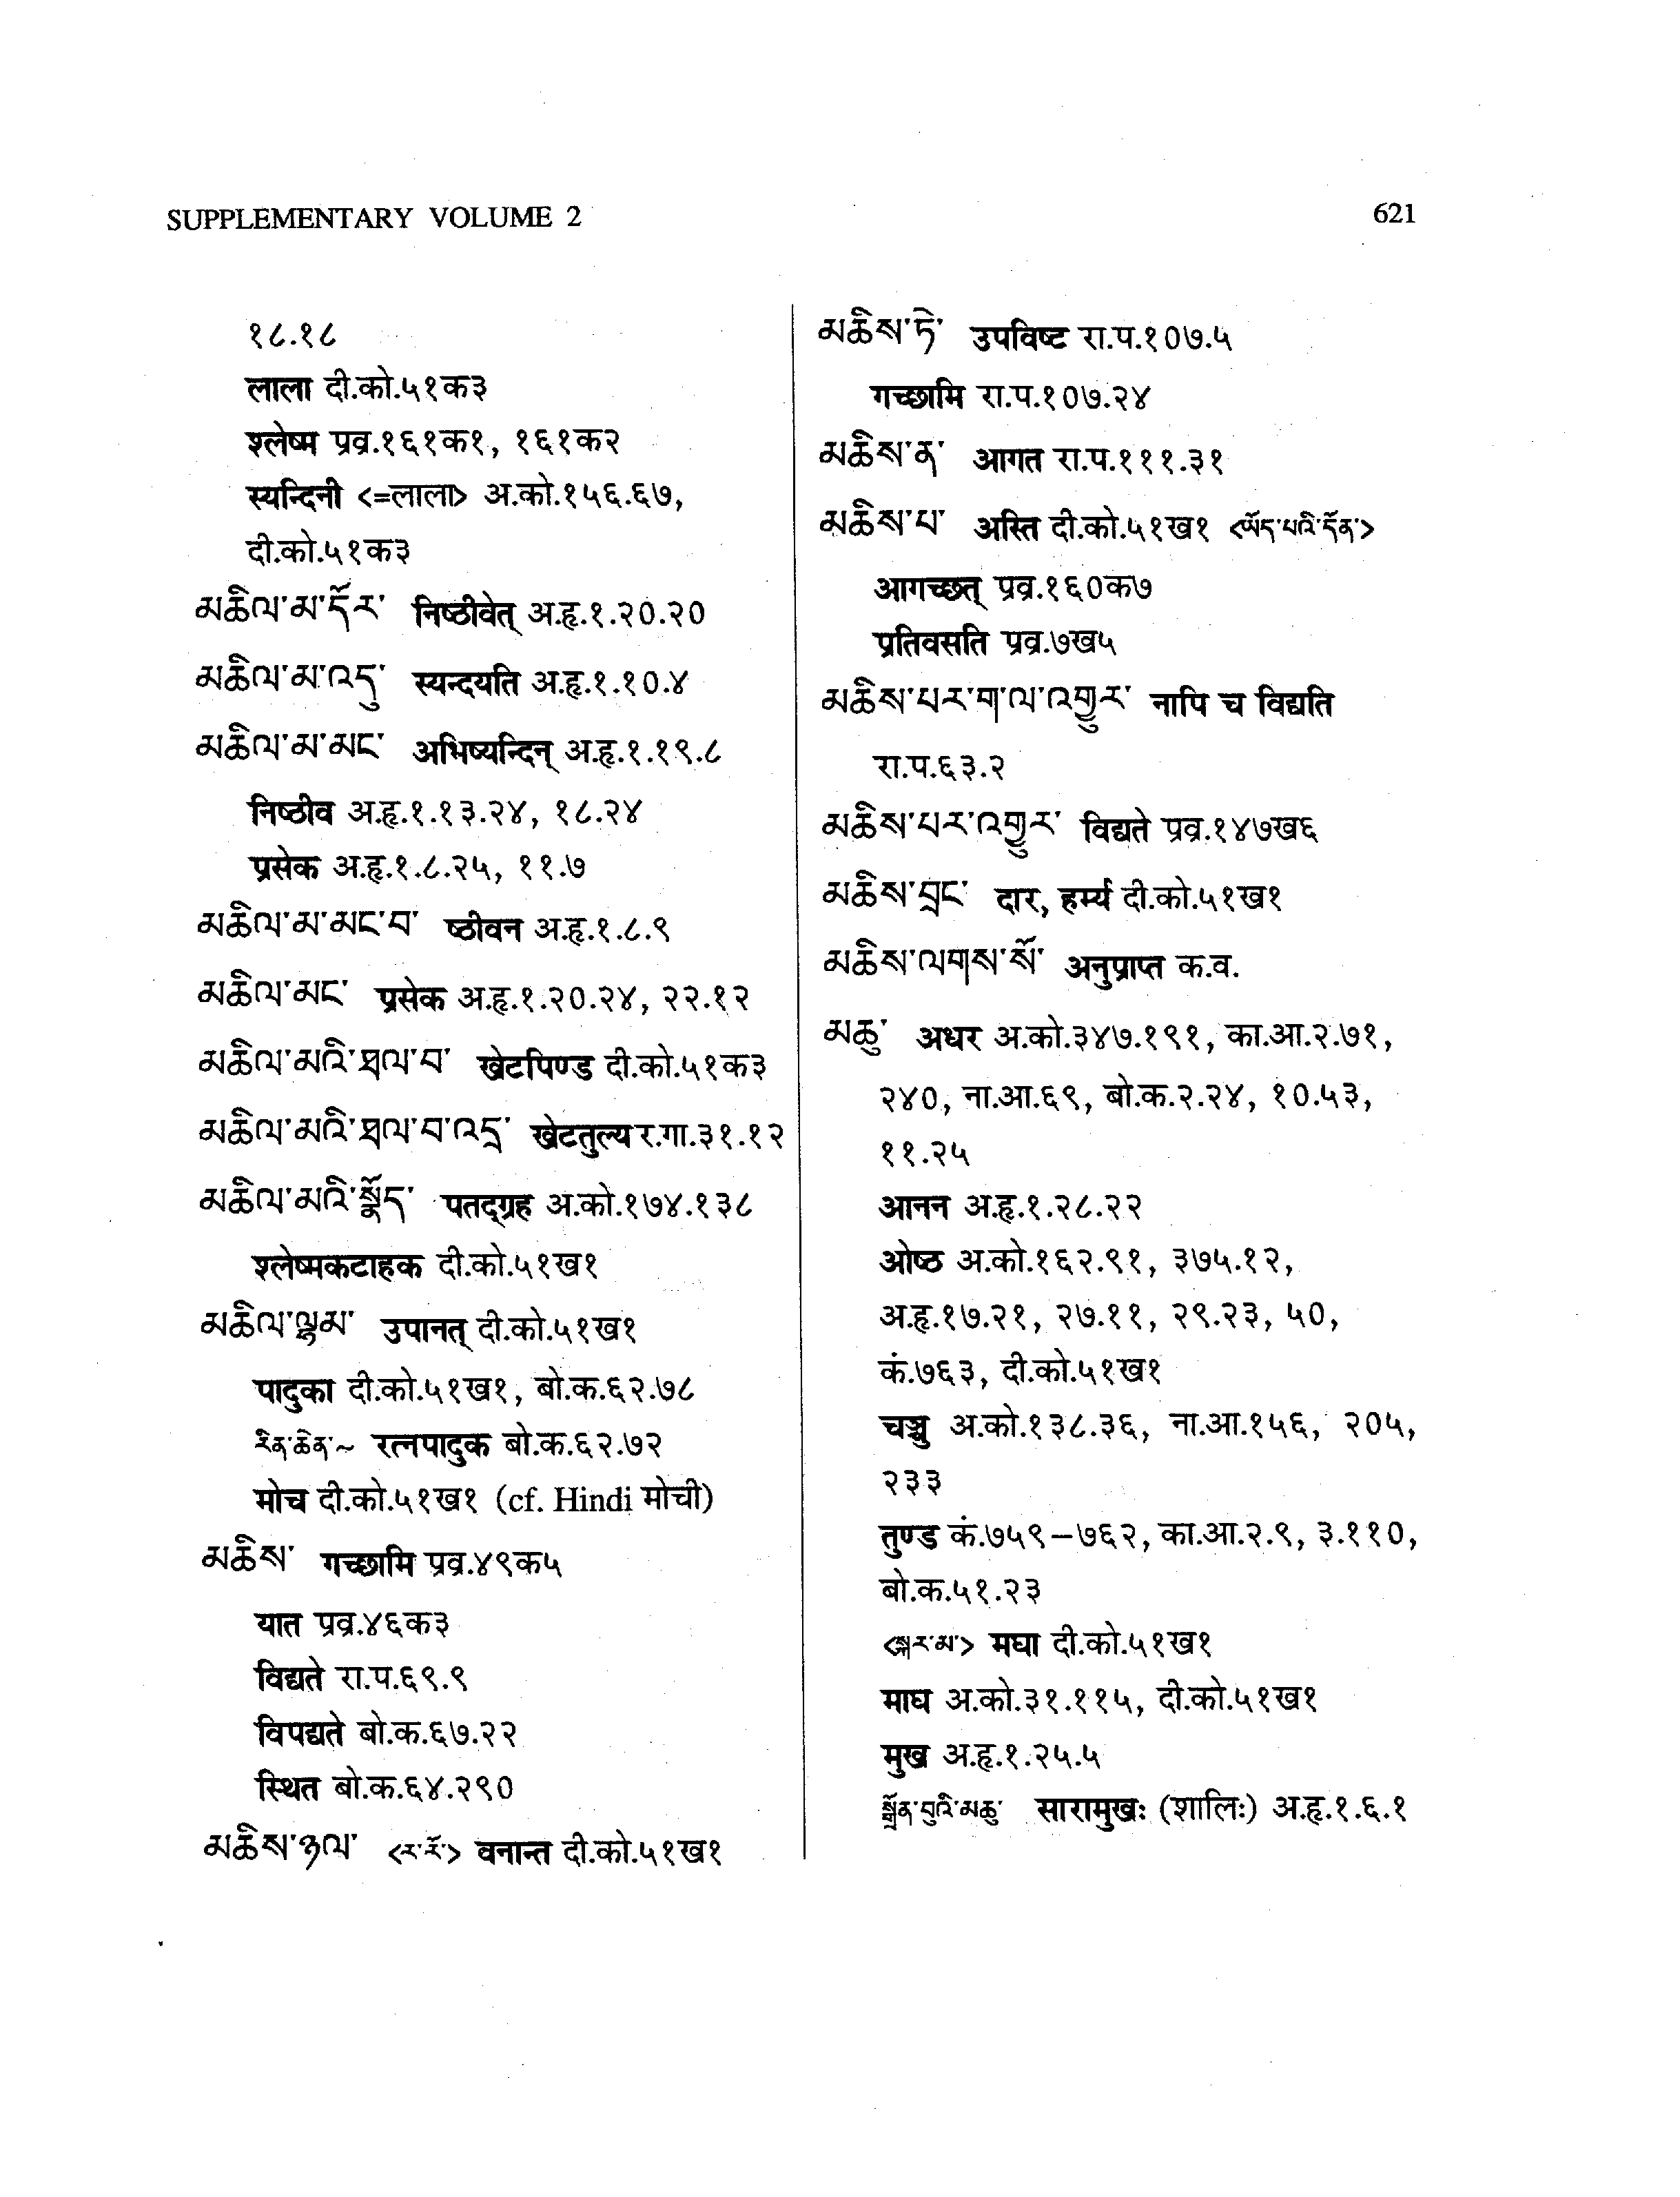 SUPPLEMENTARY VOLUME 2
621
१८.१८
लाला दी.को.५१क३
श्लेष्म प्रव्र.१६१क१, १६१क२
स्यन्दिनी <=लाला> अ.को.१५६.६७,
दी.को.५१क३
མཆིལ་མ་དོར་ निष्ठीवेत् अ.हृ.१.२०.२०
མཆིལ་མ་འདུ་ स्यन्दयति अ.हृ.१.१०.४
མཆིལ་མ་མང་ अभिष्यन्दिन् अ.हृ.१.१९.८
निष्ठीव अ.हृ.१.१३.२४, १८.२४
प्रसेक अ.हृ.१.८.२५, ११.७
མཆིལ་མ་མང་བ་ ष्ठीवन अ.हृ.१.८.९
མཆིལ་མང་ प्रसेक अ.हृ.१.२०.२४, २२.१२
མཆིལ་མའི་ཐལ་བ་ खेटपिण्ड दी.को.५१क३
མཆིལ་མའི་ཐལ་བ་འདྲ་ खेटतुल्य र.गा.३१.१२
མཆིལ་མའི་སྣོད་ पतद्ग्रह अ.को.१७४.१३८
श्लेष्मकटाहक दी.को.५१ख१
མཆིལ་ལྷམ་ उपानत् दी.को.५१ख१
पादुका दी.को.५१ख१, बो.क.६२.७८
རིན་ཆེན་~ रत्नपादुक बो.क.६२.७२
मोच दी.को.५१ख१ (cf. Hindi मोची)
མཆིས་ गच्छामि प्रव्र.४९क५
यात प्रव्र.४६क३
विद्यते रा.प.६९.९
विपद्यते बो.क.६७.२२
स्थित बो.क.६४.२९०
མཆིས་ཉལ་ <ར་རོ་> वनान्त दी.को.५१ख१
མཆིས་ཏེ་ उपविष्ट रा.प.१०७.५
गच्छामि रा.प.१०७.२४
མཆིས་ན་ आगत रा.प.१११.३१
མཆིས་པ་ अस्ति दी.को.५१ख१ <ཡོད་པའི་དོན་>
आगच्छत् प्रव्र.१६०क७
प्रतिवसति प्रव्र.७ख५
མཆིས་པར་ག་ལ་འགྱུར་ नापि च विद्यति
रा.प.६३.२
མཆིས་པར་འགྱུར་ विद्यते प्रव्र.१४७ख६
མཆིས་བྲང་ दार, हर्म्य दी.को.५१ख१
མཆིས་ལགས་སོ་ अनुप्राप्त क.व.
མཆུ་ अधर अ.को.३४७.१९१, का.आ.२.७१,
२४०, ना.आ.६९, बो.क.२.२४, १०.५३,
११.२५
आनन अ.हृ.१.२८.२२
ओष्ठ अ.को.१६२.९१, ३७५.१२,
अ.हृ.१७.२१, २७.११, २९.२३, ५०,
कं.७६३, दी.को.५१ख१
चञ्चु अ.को.१३८.३६, ना.आ.१५६, २०५,
२३३
तुण्ड कं.७५९–७६२, का.आ.२.९, ३.११०,
बो.क.५१.२३
<སྐར་མ་> मघा दी.को.५१ख१
माघ अ.को.३१.११५, दी.को.५१ख१
मुख अ.हृ.१.२५.५
སྒྲོན་བུའི་མཆུ་ सारामुखः (शालिः) अ.हृ.१.६.१